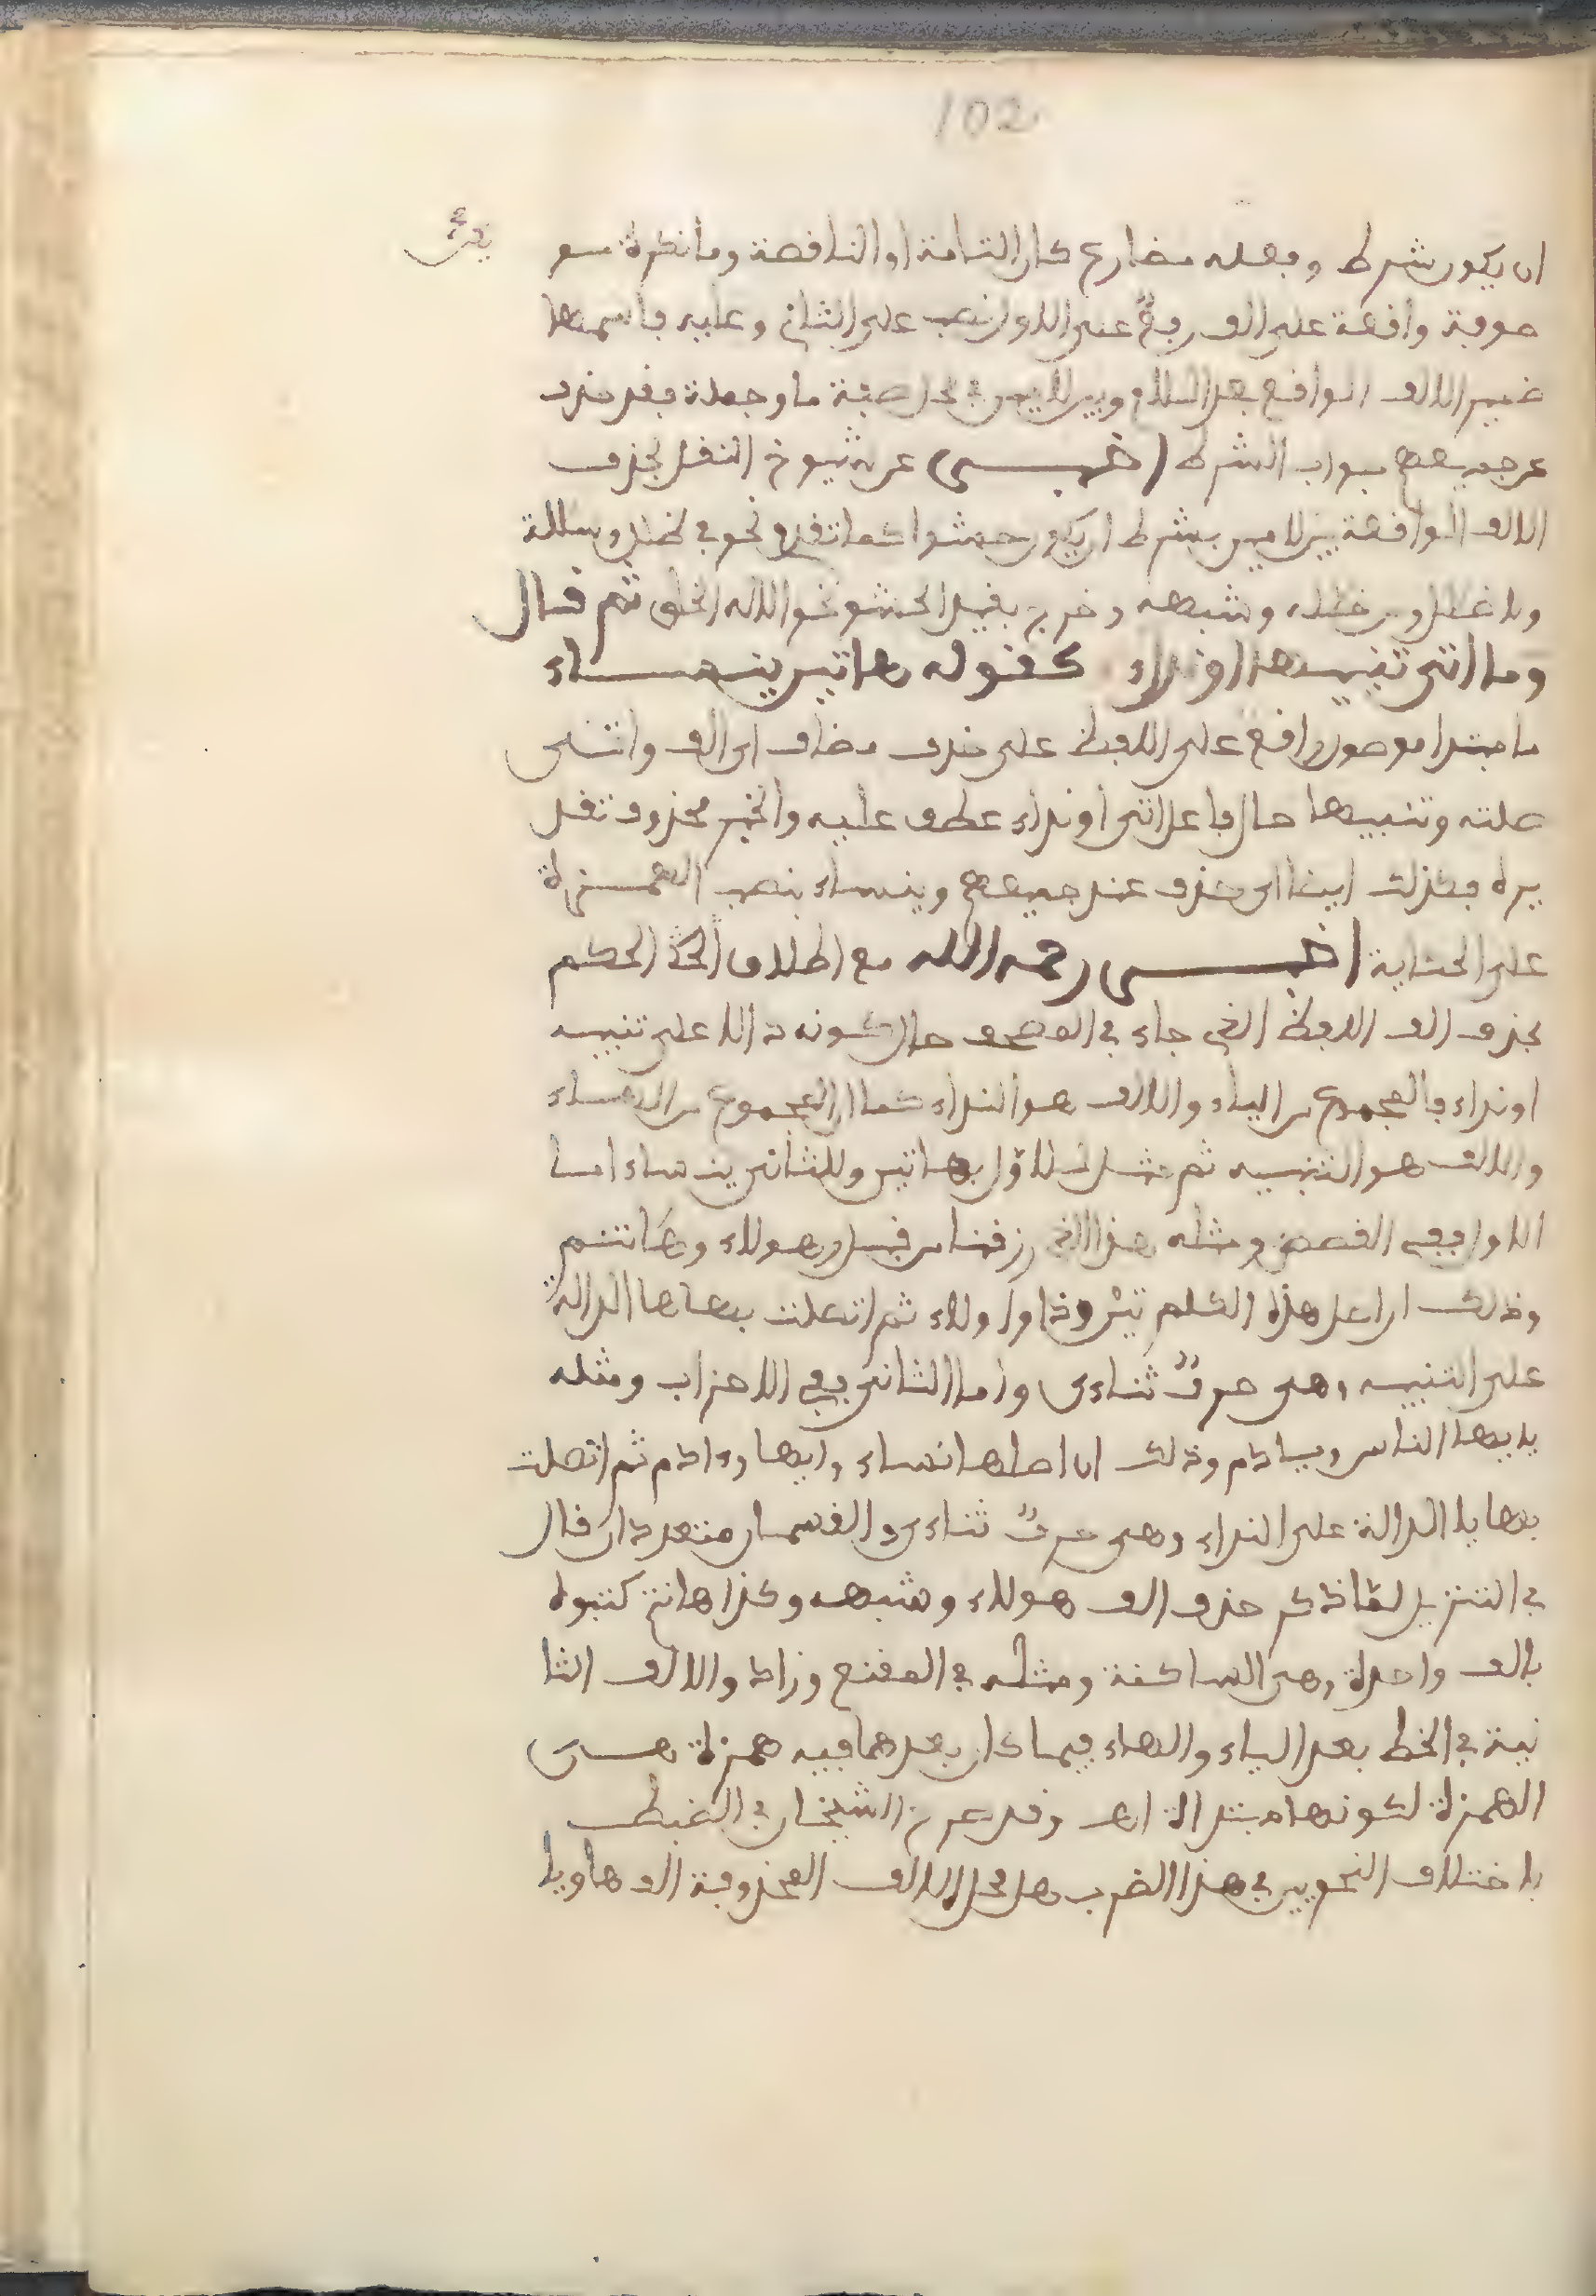 102
ان يكون شرط وفعله مضارع كان التامة او الناقصة وما نكرة مو
صوفة واقعة على الف رفع على الاول نصب على الثاني وعليه فاسمها
ضمير الالف الواقع بعد اللام وبين لامين في محل صفة ما وجملة فقد حذف
عن جميعهم جواب الشرط اخبـــر عن شيوخ النقل بحذف
الالف الواقعة بين لامين بشرط ان يكون حشوا كما تقدم نحو في ضلال وسلالة
ولا خلال ومن خلاله وشبهه وخرج بقيد الحشو نحو الاله الحق ثم قال
وما اتى تنبيها او نداء كقوله هاتين ينســاء
ما مبتدا موصول واقع على اللفظ على حذف مضاف اى الف واتــى
صلته وتنبيها حال فاعل اتى او نداء عطف عليه والخبر محذوف تقد
يره فكذلك ايضا اى حذف عند جميعهم وينساء بنصب الهمــزة
على الحكاية اخبـــر رحمه الله مع اطلاق الحكم
بحذف الف اللفظ الذي جاء في المصحف حال كونه دالا على تنبيه
او نداء فالمجموع من الياء والالف هو النداء كما ان المجموع من الهــاء
والالف هو التنبيه ثم مثل للاول بهاتين وللثاني ينساء اما
الاول ففي القصص ومثله هذا الذي رزقنا من قبل وهولاء وهانتم
وذلك ان اصل هذه الكلم تين وذا واولاء ثم اتصلت بها ها الدالة
على التنبيه وهي حرف ثناءى واما الثاني ففي الاحزاب ومثله
يايها الناس ويئادم وذلك ان اصلها نساء وايها وءادم ثم اتصلت
بها يا الدالة على النداء وهي حرف ثناءى والقسمان متعددان قال
في التنزيل لما ذكر حذف الف هولاء وشبهه وكذا هانتم كتبوه
بالف واحدة وهي الساكنة ومثله في المقنع وزاد والالف الثا
نية في الخط بعد الياء والهاء فيما كان بعدهما فيه همزة هــى
الهمزة لكونها مبتداة اهـ وقد صرح الشيخان في الضبط
باختلاف النحويين في هذا الضرب هل محل الالف المحذوفة الف ها ويا